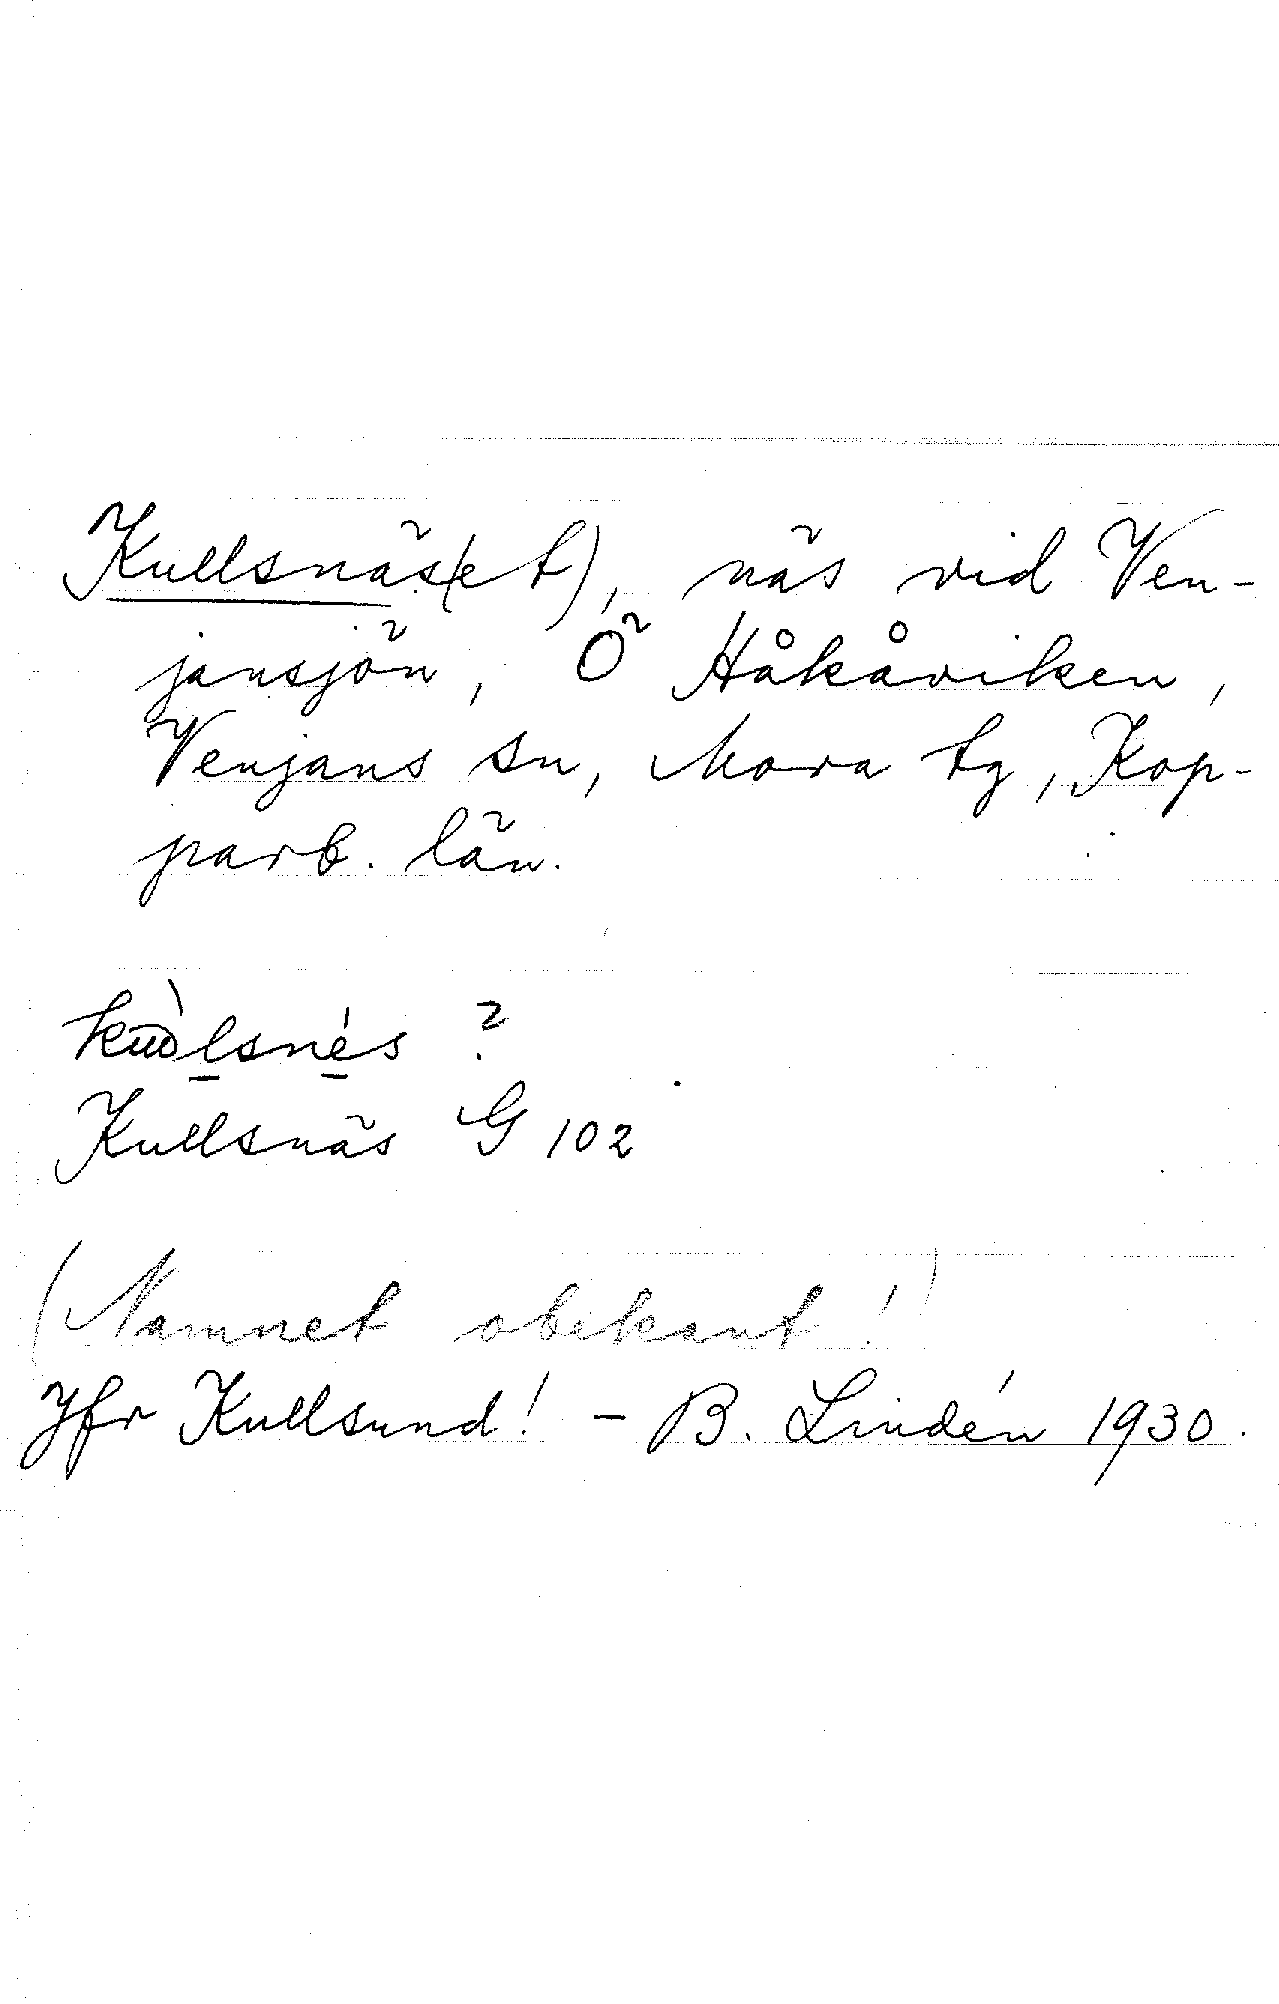 Kullsnäs(et), näs vid Ven-
jansjön, Ö Håkåviken,
Venjans sn, Mora tg, Kop-
parb. län.
?
Kullsnäs G 102
(Namnet obekant!)
Jfr Kullsund! - B. Lindén 1930.